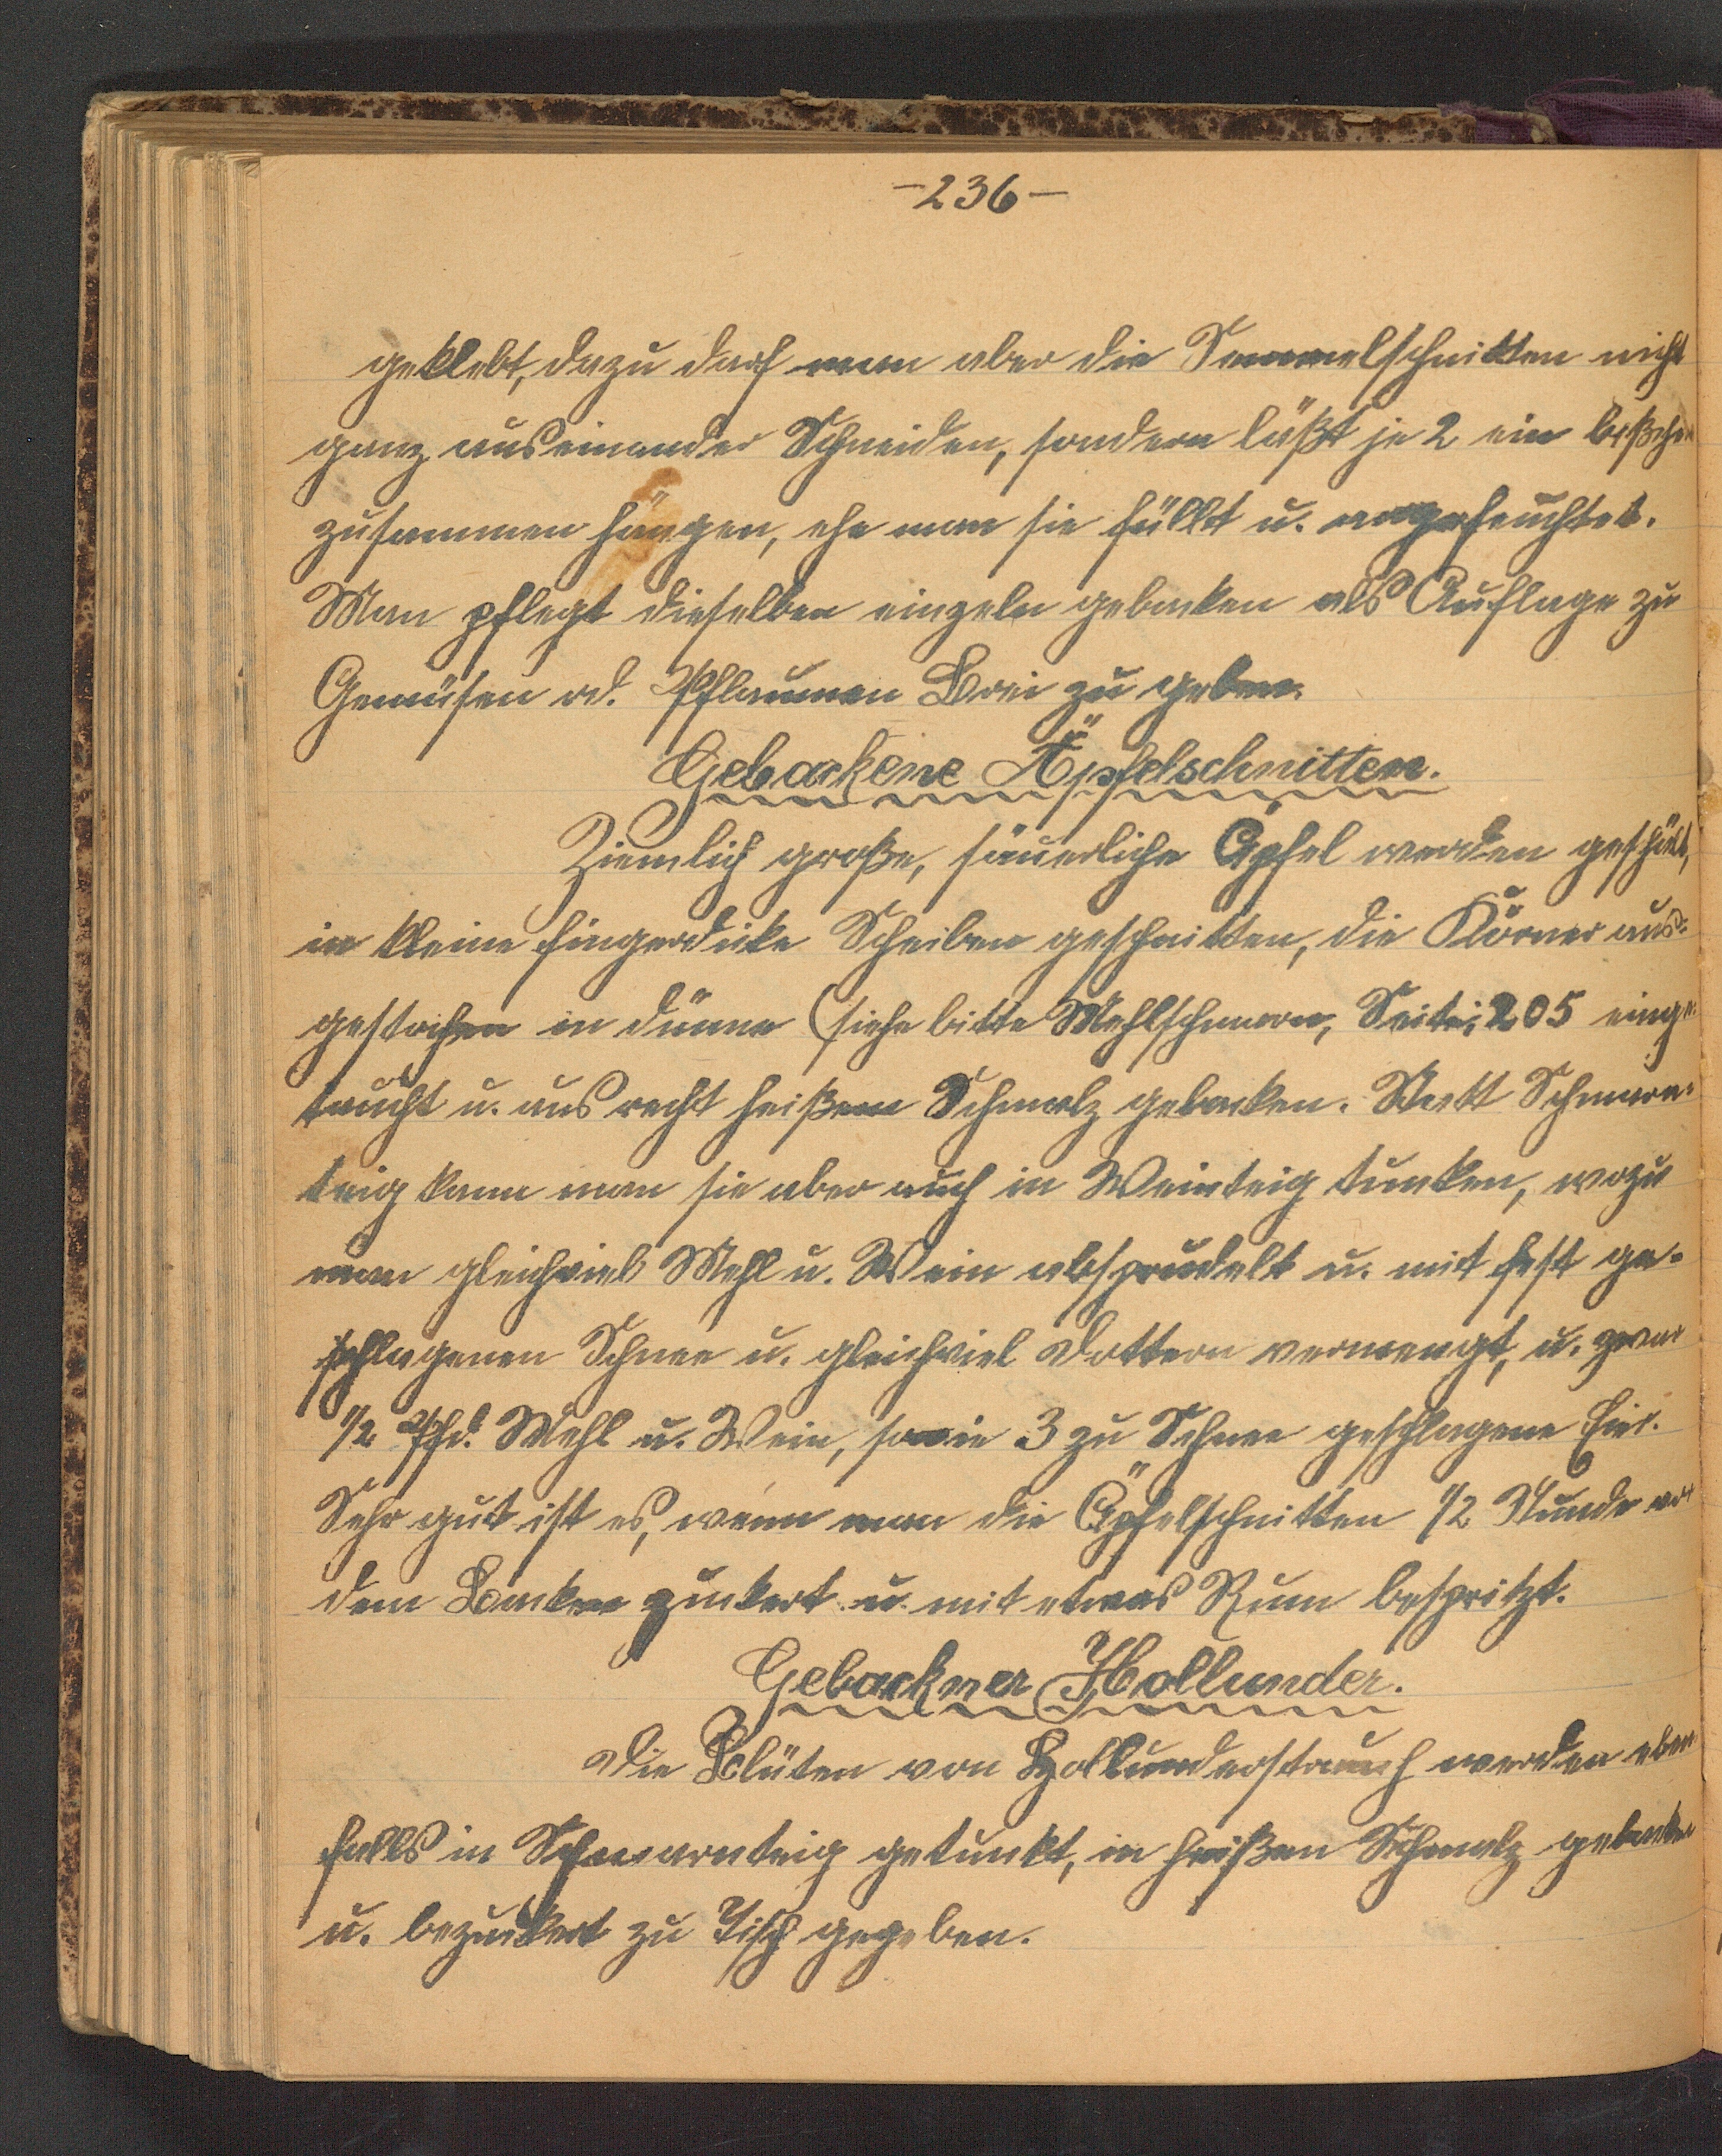 -236-
geklebt, dazu darf man aber die Semmelschnitten nicht
ganz auseinander Schneiden, sondern läßt je 2 ein bißchen
zusammen hängen, ehe man sie füllt u. angefeuchtet.
Man pflegt dieselben einzeln gebacken als Auflage zu
Gemüsen od. Pflaumen Brei zu geben.
Gebackene Äpfelschnitten.
Ziemlich große, säuerliche Äpfel werden geschält,
in kleine fingerdicke Scheiben geschnitten, die Körner aus-
gestochen in dünne (siehe bitte Mehlschmarrn, Seite; 205 einge-
taucht u. aus recht heißem Schmalz gebacken. Statt Schmarn-
teig kann man sie aber auch in Weinteig tunken, wozu
man gleichviel Mehl u. Wein absprudelt u. mit fest ge-
schlagenen Schnee u. gleichviel Dottern vermengt, u. zwar
1/2 Pfd. Mehl u. Wein, sowie 3 zu Schnee geschlagene Eier.
Sehr gut ist es, wenn man die Äpfelschnitten 1/2 Stunde vor
dem Backen zuckert u. mit etwas Rum bespritzt.
Gebackner Hollunder.
Die Blüten von Hollunderstrauch werden eben
falls in Schmarnteig getunkt, in heißen Schmalz gebacken
u. bezuckert zu Tisch gegeben.